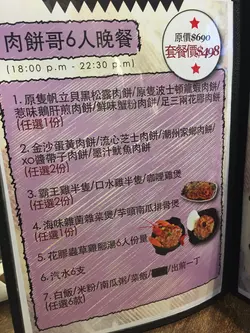 原價$690
套餐價$498
肉餅哥6人晚餐
(18:00 p.m - 22:30 p.m)
1. 原隻帆立貝黑松露肉餅/原隻波士頓龍蝦肉餅/
惹味鵝肝煎肉餅/鮮味蟹粉肉餅/足三兩花膠肉餅
(任選1份)
2. 金沙蛋黃肉餅/流心芝士肉餅/潮州家鄉肉餅/
xo醬帶子肉餅/墨汁魷魚肉餅
(任選2份)
3. 霸王雞半隻/口水雞半隻/咖喱雞煲
(任選2份)
4. 海味雜菌雜菜煲/芋頭南瓜排骨煲
(任選1份)
5. 花膠蟲草雞腳湯6人份量
6. 汽水6支
7. 白飯/米粉/南瓜粥/菜飯/出前一丁
(任選6款)